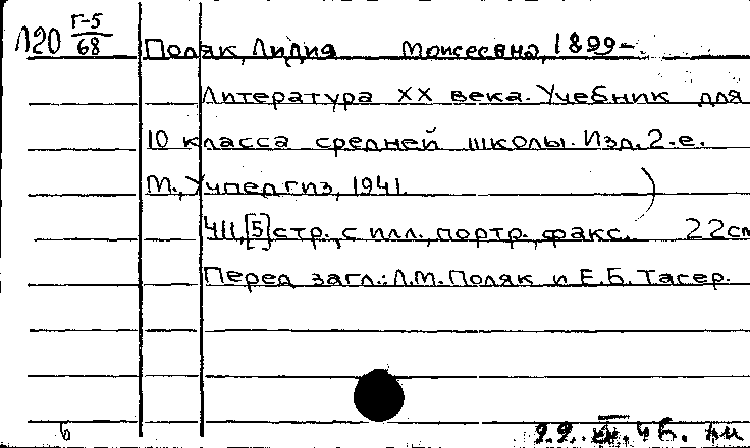 Л20 Г-5/68
Поляк, Лидия Моисеевна, 1899-.
Литература XX века. Учебник для
10 класса средней школы. Изд. 2-е.
М., Учпедгиз, 1941.
411, [5] стр., с илл., портр., факс. 22см
Перед загл.: Л.М. Поляк и Е.Б. Тагер.
б